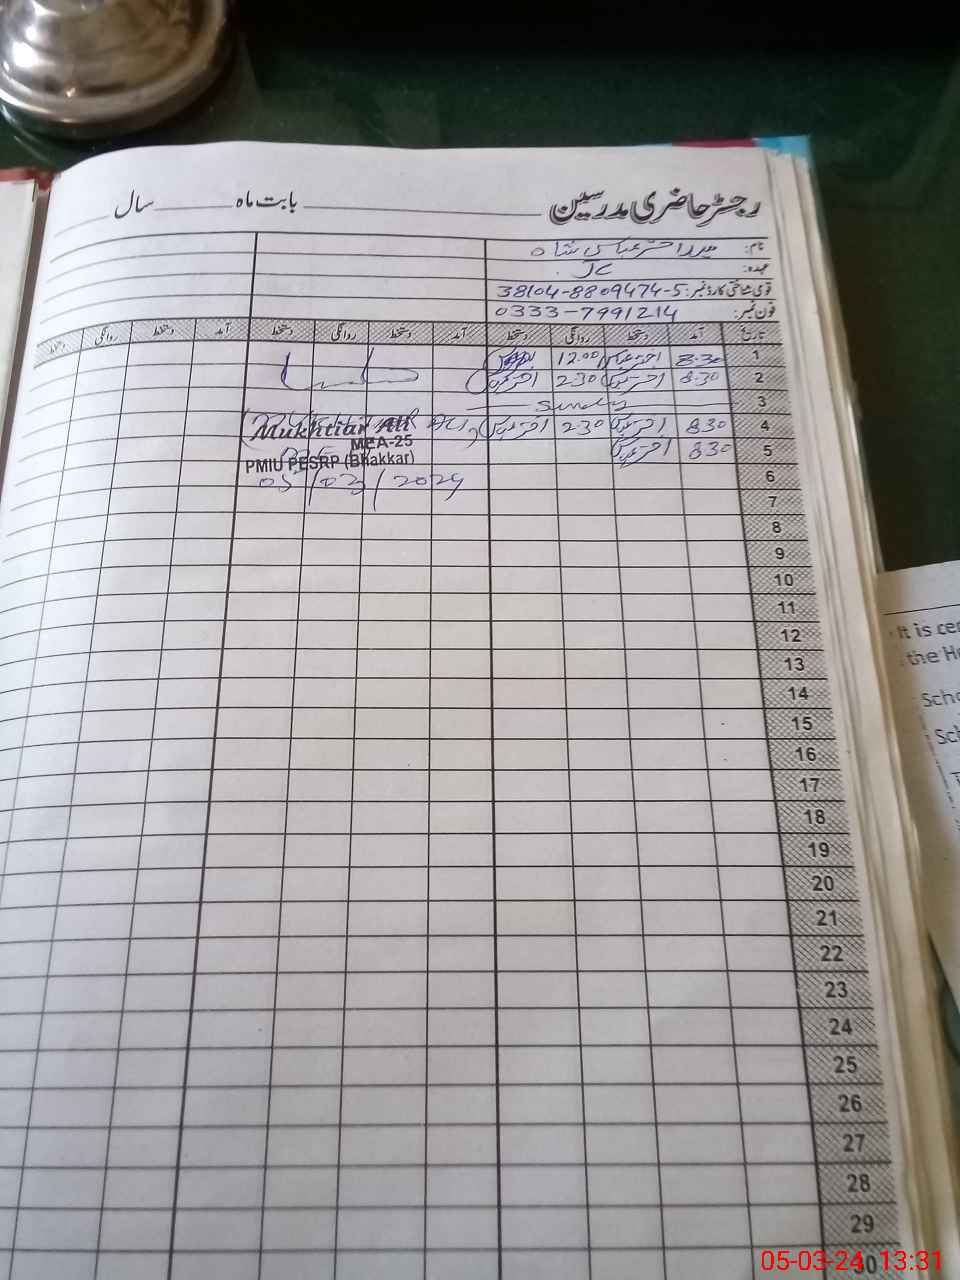 رجسٹر حاضری مدرسین ــــــ بابت ماہ ــــــ سال ــــــ
نام: اختر عباس شاہ
عہدہ:
قومی شناختی کارڈ نمبر: 38104-8809474-5
فون نمبر: 0333-7991214
تاریخ آمد دستخط روانگی دستخط آمد دستخط روانگی دستخط آمد دستخط روانگی دستخط
1 8.30 اختر عباس 12.00
2 8.30 اختر عباس 2.30 اختر عباس
3 Sunday
4 8.30 اختر عباس 2.30 اختر عباس
5 8.30 اختر عباس
Mukhtiar Ali
MEA-25
PMIU PESRP (Bhakkar)
05/03/2024
6
7
8
9
10
11
12
13
14
15
16
17
18
19
20
21
22
23
24
25
26
27
28
29
30
It is cer
the He
Scho
Sch
05-03-24 13:31